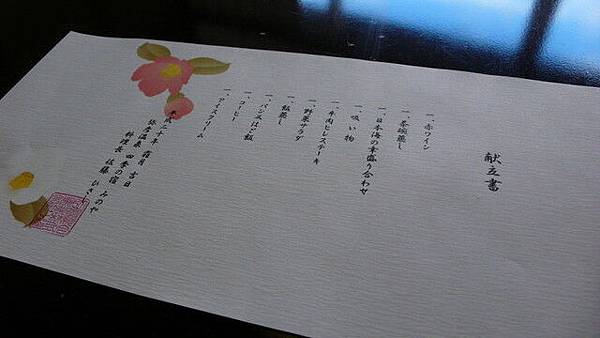 献立書
一、赤ワイン
一、茶碗蒸し
一、日本海の幸盛り合わせ
一、吸い物
一、牛肉ヒレステーキ
一、野菜サラダ
一、飯蒸し
一、パン又はご飯
一、コーヒー
一、アイスクリーム
二十年 霜月 吉日
弥彦温泉 四季の宿 みのや
料理長 佐藤 ひさし